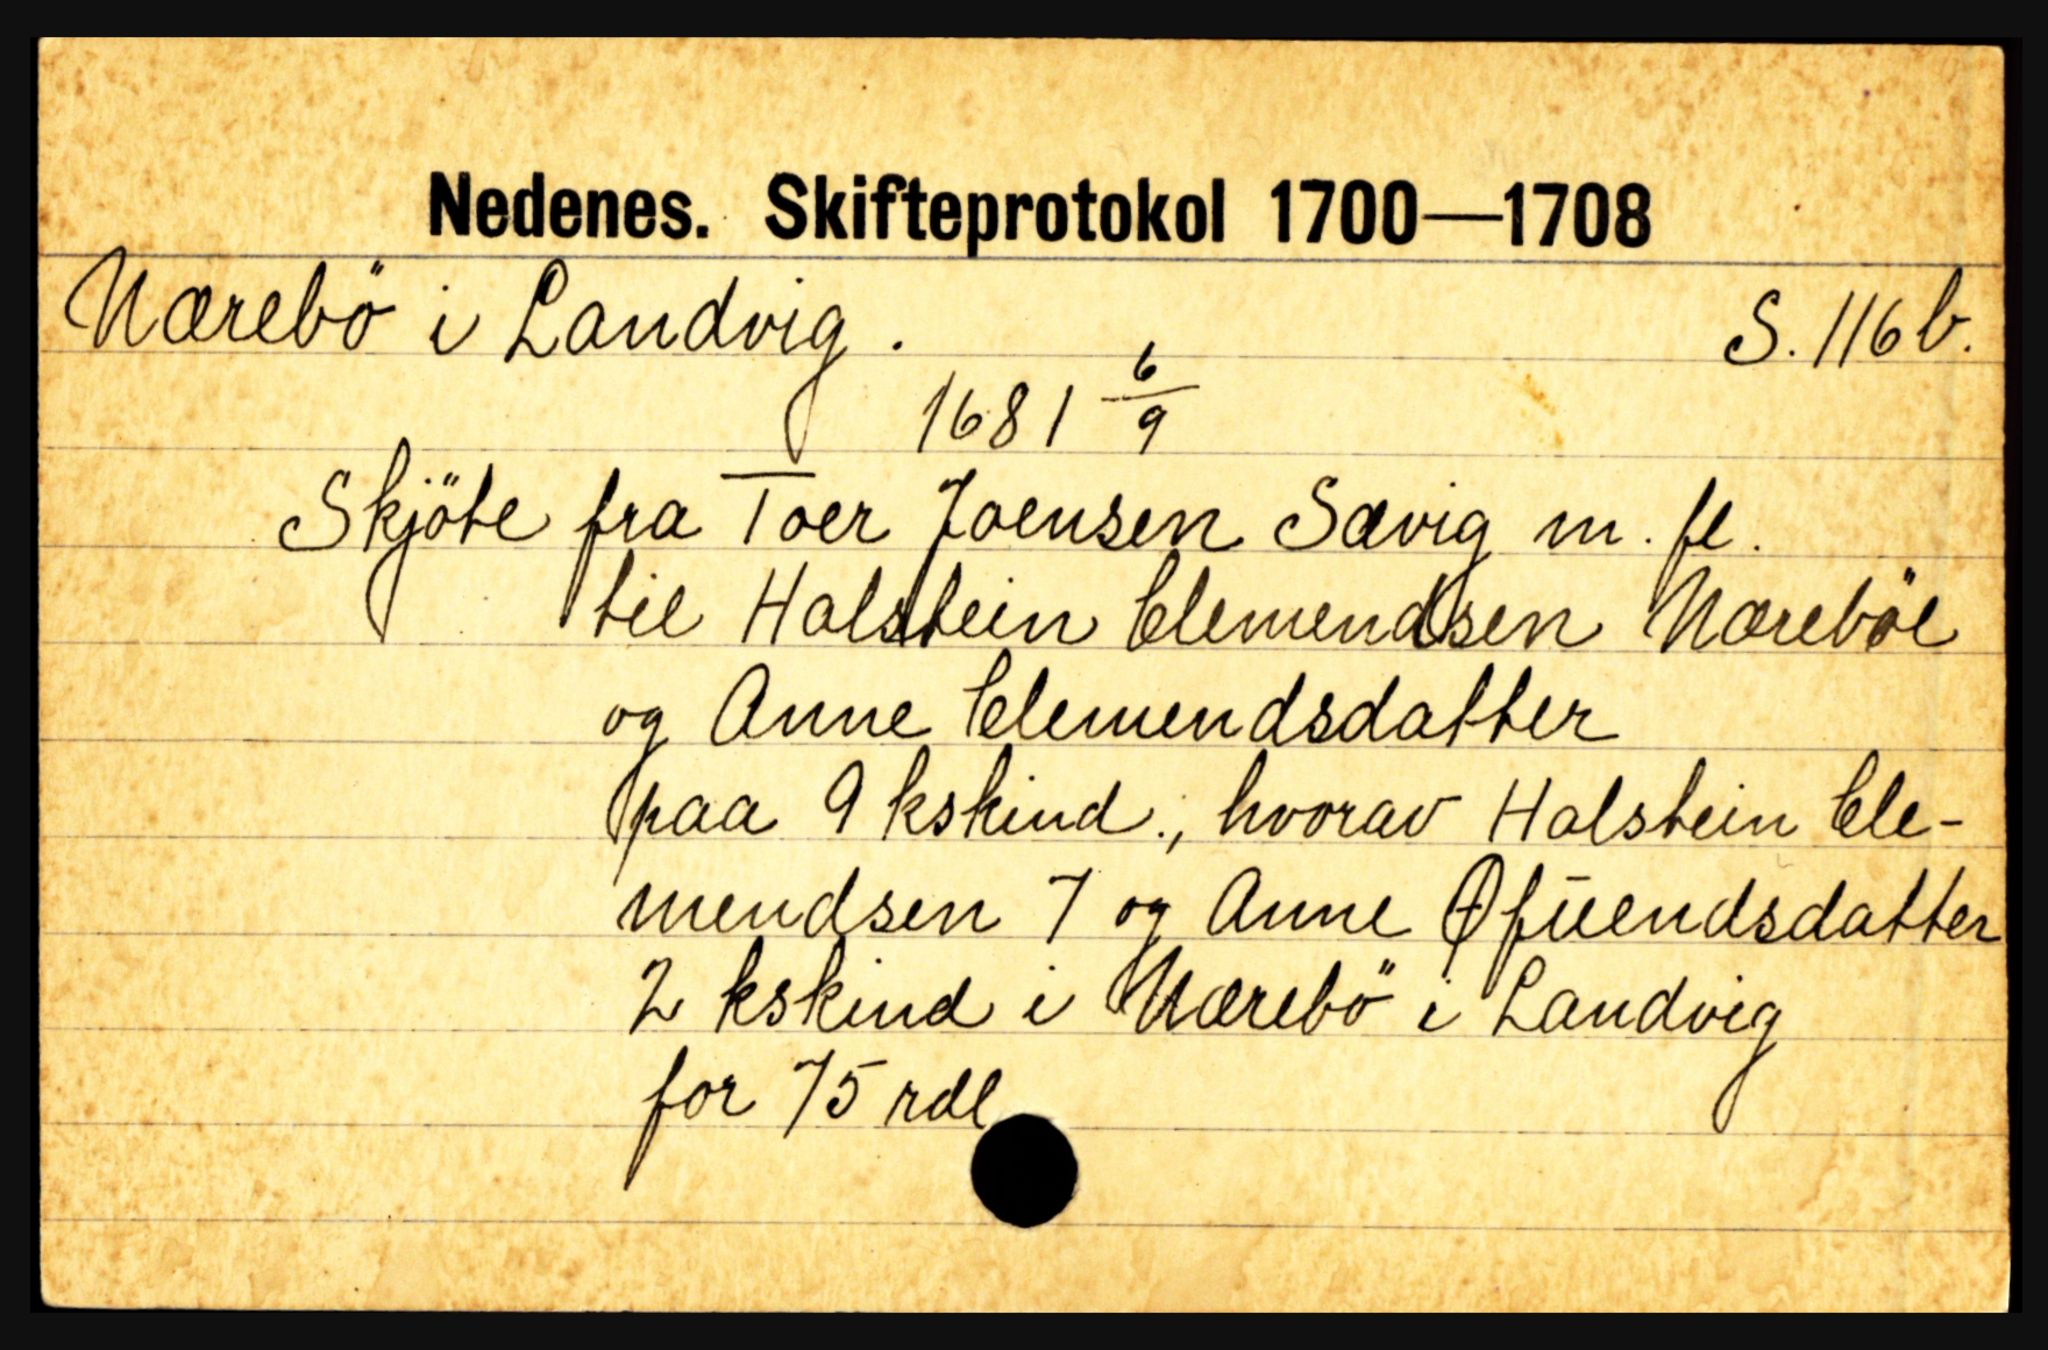 Nedenes. Skifteprotokol 1700—1708
Nærebö i Landvig. S. 116 b.
1681 6/9
Skjöte fra Toer Joensen Sævig m. fl.
til Halstein Clemendsen Næreböe
og Anne Clemendsdatter
paa 9 kskind., hvorav Halstein Cle-
mendsen 7 og Anne Øfŭendsdatter
2 kskind i Nærebö i Landvig
for 75 rdl